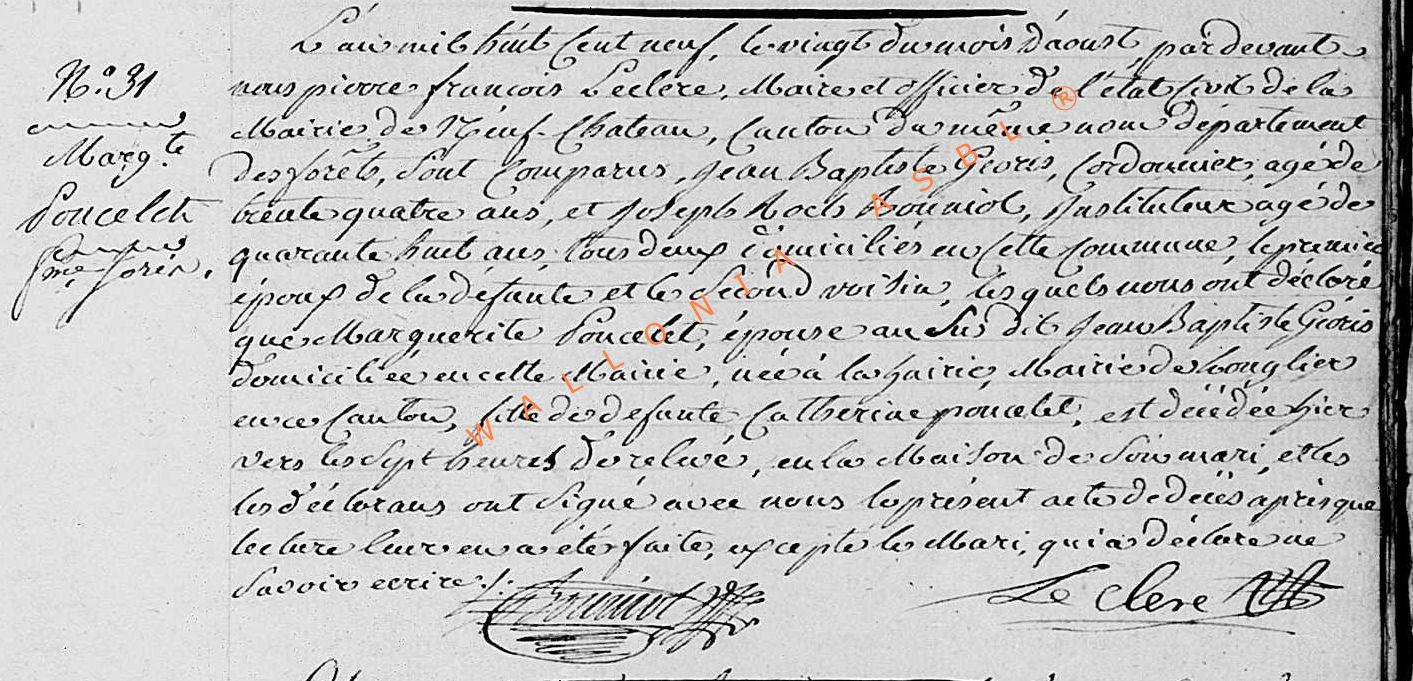 L'an mil huit Cent neuf, le vingt du mois d'aoust, pardevant
nous pierre françois Leclere, Maire et officier de l'état Civil de la
N.° 31
Mairie de Neuf-Chateau, Canton du même nom département
Marg.te
des forêts, sont Comparus, Jean Baptiste Gioris, Cordonnier, agé de
Poncelet
trente quatre ans, et Joseph Roch Bouniol, Instituteur agé de
fme Joris.
quarante huit ans, tous deux domiciliés en Cette Commune, le premier
époux de la defunte et le second voisin, lesquels nous ont déclaré
que Marguerite Poncelet, épouse au sus dit Jean Baptiste Gioris
domiciliée en cette Mairie, née à la hairie, Mairie de Longlier
en ce Canton, fille de defunte Catherine poncelet, est décédée hier
vers les sept heures de relevé, en la Maison de Son mari, et les
les déclarans ont Signé avec nous le présent acte de décès après que
lecture leur en a été faite, excepté le Mari, qui a déclaré ne
savoir ecrire ./.
Bouniol
Le clere
WALLONIA ASBL ®